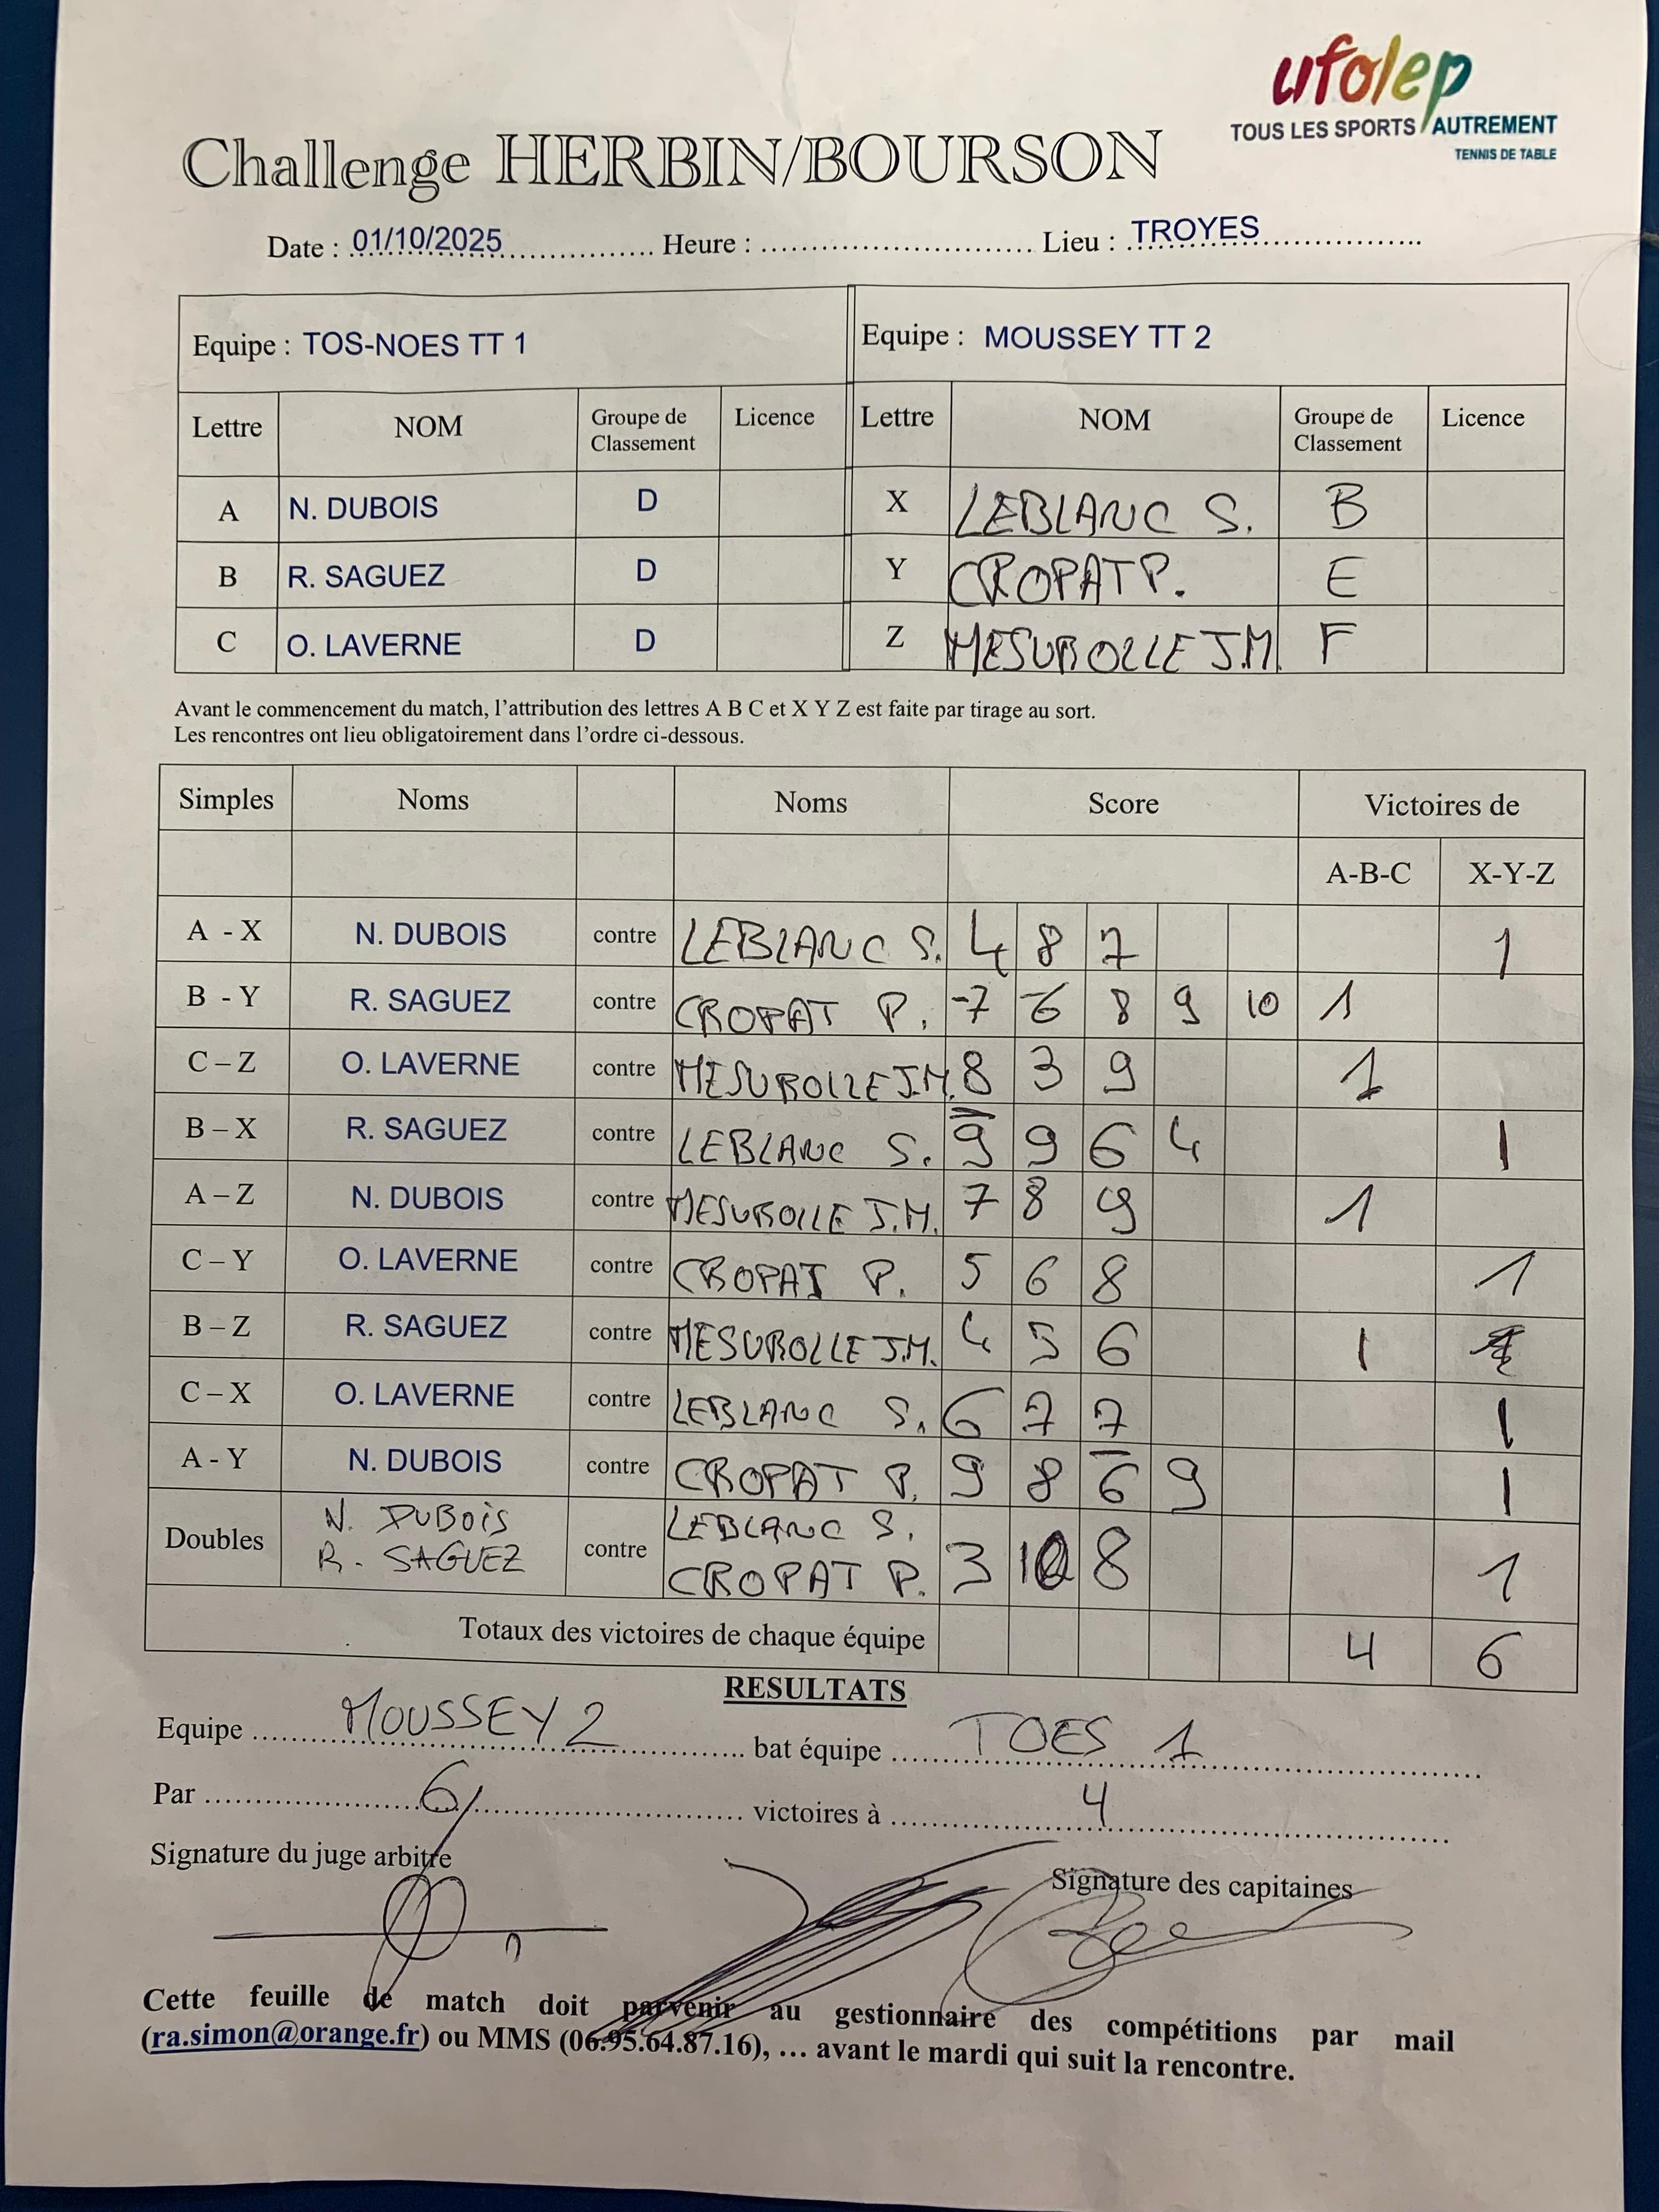 ufolep
TOUS LES SPORTS AUTREMENT
TENNIS DE TABLE
Challenge HERBIN/BOURSON
Date : 01/10/2025 Heure : Lieu : TROYES
Equipe : TOS-NOES TT 1 Equipe : MOUSSEY TT 2
Lettre NOM Groupe de Classement Licence Lettre NOM Groupe de Classement Licence
A N. DUBOIS D X LEBLANC S. B
B R. SAGUEZ D Y CROPAT P. E
C O. LAVERNE D Z MESUROLLE J.M. F
Avant le commencement du match, l'attribution des lettres A B C et X Y Z est faite par tirage au sort.
Les rencontres ont lieu obligatoirement dans l'ordre ci-dessous.
Simples Noms Noms Score Victoires de
A-B-C X-Y-Z
A - X N. DUBOIS contre LEBLANC S. 4 8 7 1
B - Y R. SAGUEZ contre CROPAT P. -7 6 8 9 10 1
C – Z O. LAVERNE contre MESUROLLE J.M. 8 3 9 1
B – X R. SAGUEZ contre LEBLANC S. 9 9 6 4 1
A – Z N. DUBOIS contre MESUROLLE J.M. 7 8 9 1
C – Y O. LAVERNE contre CROPAT P. 5 6 8 1
B – Z R. SAGUEZ contre MESUROLLE J.M. 4 5 6 1
C – X O. LAVERNE contre LEBLANC S. 6 7 7 1
A - Y N. DUBOIS contre CROPAT P. 9 8 6 9 1
Doubles N. DUBOIS R. SAGUEZ contre LEBLANC S. CROPAT P. 3 10 8 1
Totaux des victoires de chaque équipe 4 6
RESULTATS
Equipe MOUSSEY 2 bat équipe TOES 1
Par 6 victoires à 4
Signature du juge arbitre Signature des capitaines
Cette feuille de match doit parvenir au gestionnaire des compétitions par mail
(ra.simon@orange.fr) ou MMS (06.95.64.87.16), … avant le mardi qui suit la rencontre.